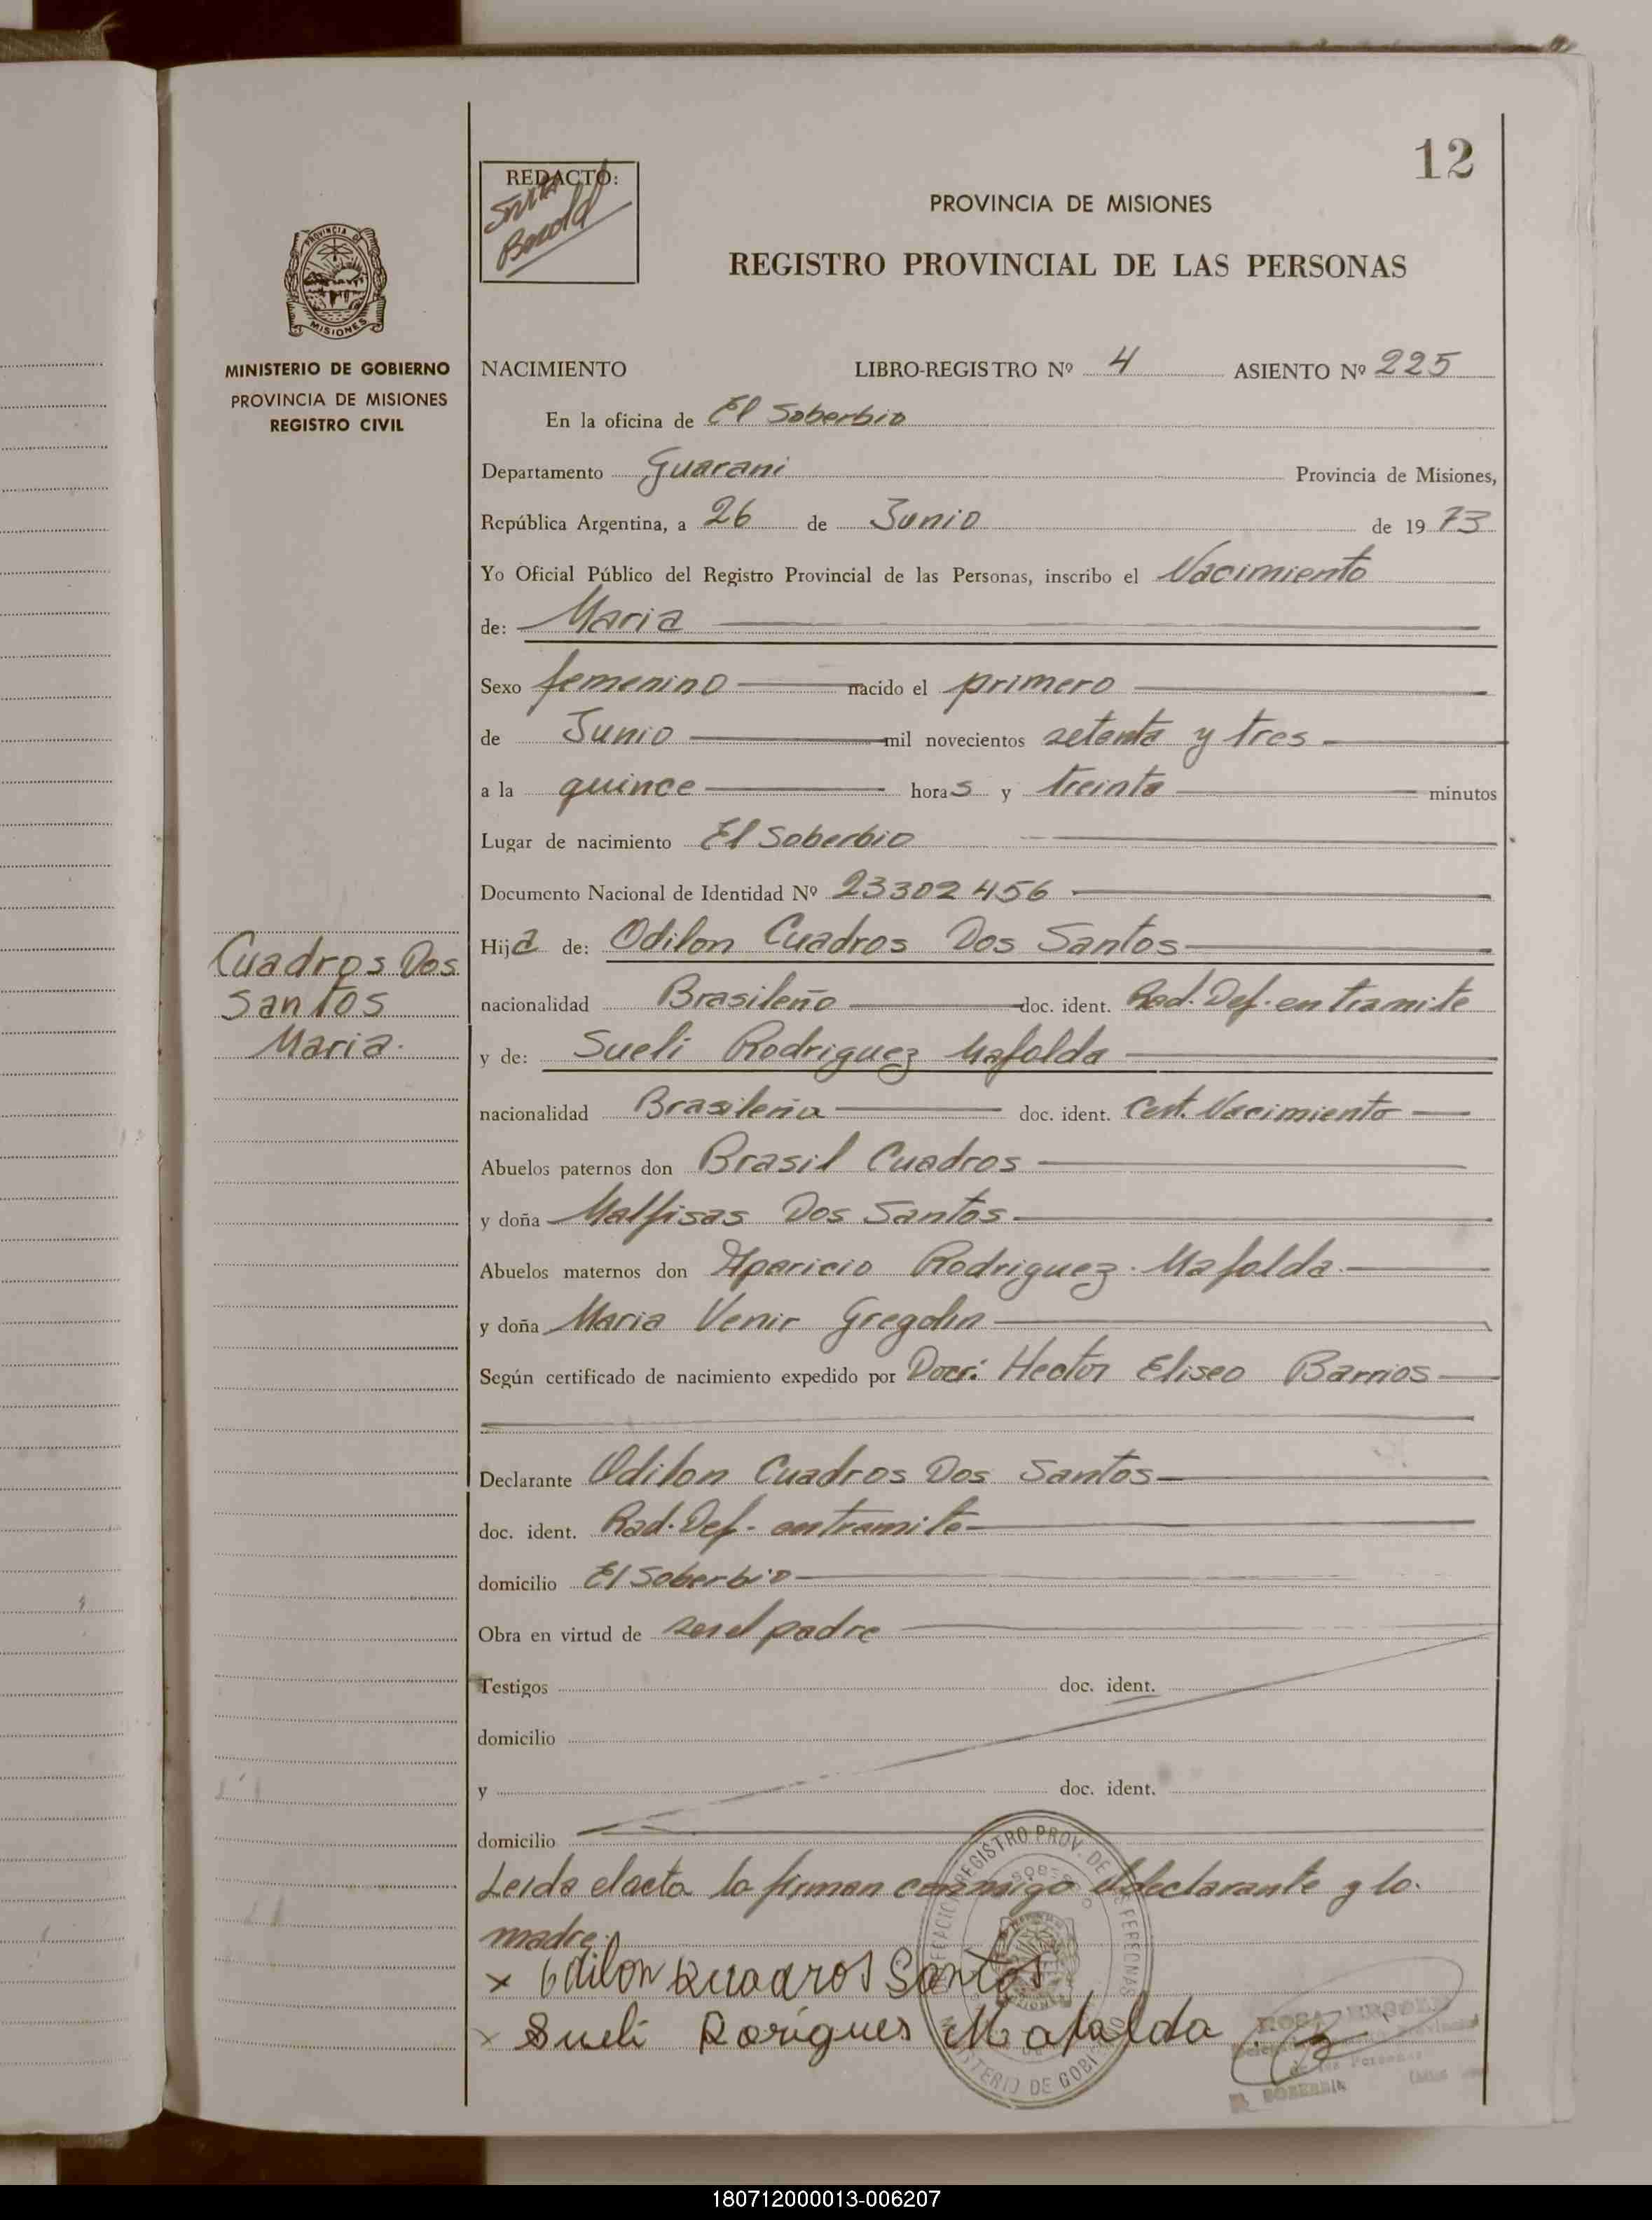 12
REDACTÓ:
PROVINCIA DE MISIONES
REGISTRO PROVINCIAL DE LAS PERSONAS
PROVINCIA DE
MISIONES
MINISTERIO DE GOBIERNO
PROVINCIA DE MISIONES
REGISTRO CIVIL
NACIMIENTO LIBRO-REGISTRO Nº 4 ASIENTO Nº 225
En la oficina de El Soberbio
Departamento Guarani Provincia de Misiones,
República Argentina, a 26 de Junio de 1973
Yo Oficial Público del Registro Provincial de las Personas, inscribo el Nacimiento
de: Maria
Sexo femenino nacido el primero
de Junio mil novecientos setenta y tres
a la quince horas y treinta minutos
Lugar de nacimiento El Soberbio
Documento Nacional de Identidad Nº 23302456
Cuadros Dos
Santos
Maria.
Hija de: Odilon Cuadros Dos Santos
nacionalidad Brasileño doc. ident. Rad. Def. en tramite
y de: Sueli Rodriguez Mafalda
nacionalidad Brasileña doc. ident. Cert. Nacimiento
Abuelos paternos don Brasil Cuadros
y doña Malfisas Dos Santos
Abuelos maternos don Aparicio Rodriguez Mafalda
y doña Maria Venir Gregolin
Según certificado de nacimiento expedido por Doct: Hector Eliseo Barrios
Declarante Odilon Cuadros Dos Santos
doc. ident. Rad. Def. en tramite
domicilio El Soberbio
Obra en virtud de ser el padre
Testigos doc. ident.
domicilio
y doc. ident.
domicilio
Leida el acta la firman conmigo el declarante y la
madre.
x Odilon Quadros Santos
x Sueli Rorigues Mafalda
REGISTRO PROV. DE LAS PERSONAS
MINISTERIO DE GOBIERNO
180712000013-006207